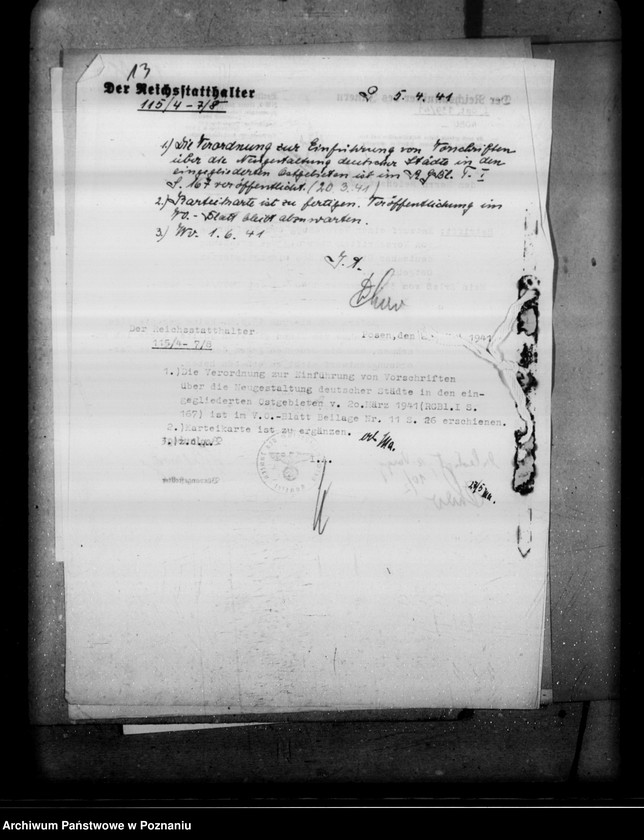 13
Der Reichsstatthalter
115/4-7/8
5.4.41
1) Die Verordnung zur Einführung von Vorschriften
über die Neugestaltung deutscher Städte in den
eingegliederten Ostgebieten ist im R.G.Bl. T. I
S. 167 veröffentlicht. (20.3.41)
2.) Karteikarte ist zu fertigen. Veröffentlichung im
VO.-Blatt bleibt abzuwarten.
3) Wv. 1.6.41
I.A.
Der Reichsstatthalter
115/4- 7/8
Posen, den
1941
1.)Die Verordnung zur Einführung von Vorschriften
über die Neugestaltung deutscher Städte in den ein-
gegliederten Ostgebieten v. 2o.März 1941(RGBl.I S.
167) ist im V.O.-Blatt Beilage Nr. 11 S. 26 erschienen.
2.)Karteikarte ist zu ergänzen.
Archiwum Państwowe w Poznaniu